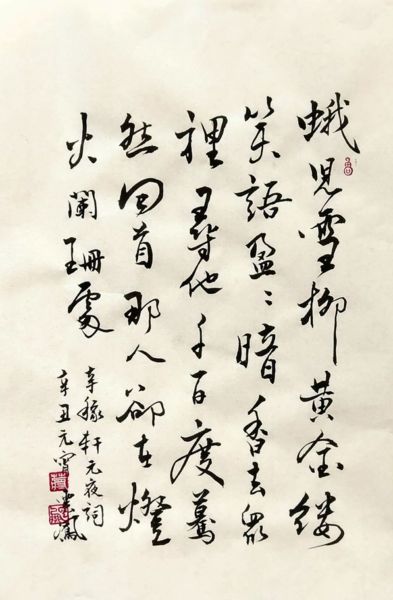 蛾兒雪柳黃金縷
笑語盈〻暗香去眾
裡尋他千百度驀
然回首那人卻在燈
火闌珊處
辛稼軒元夜詞
辛丑元宵